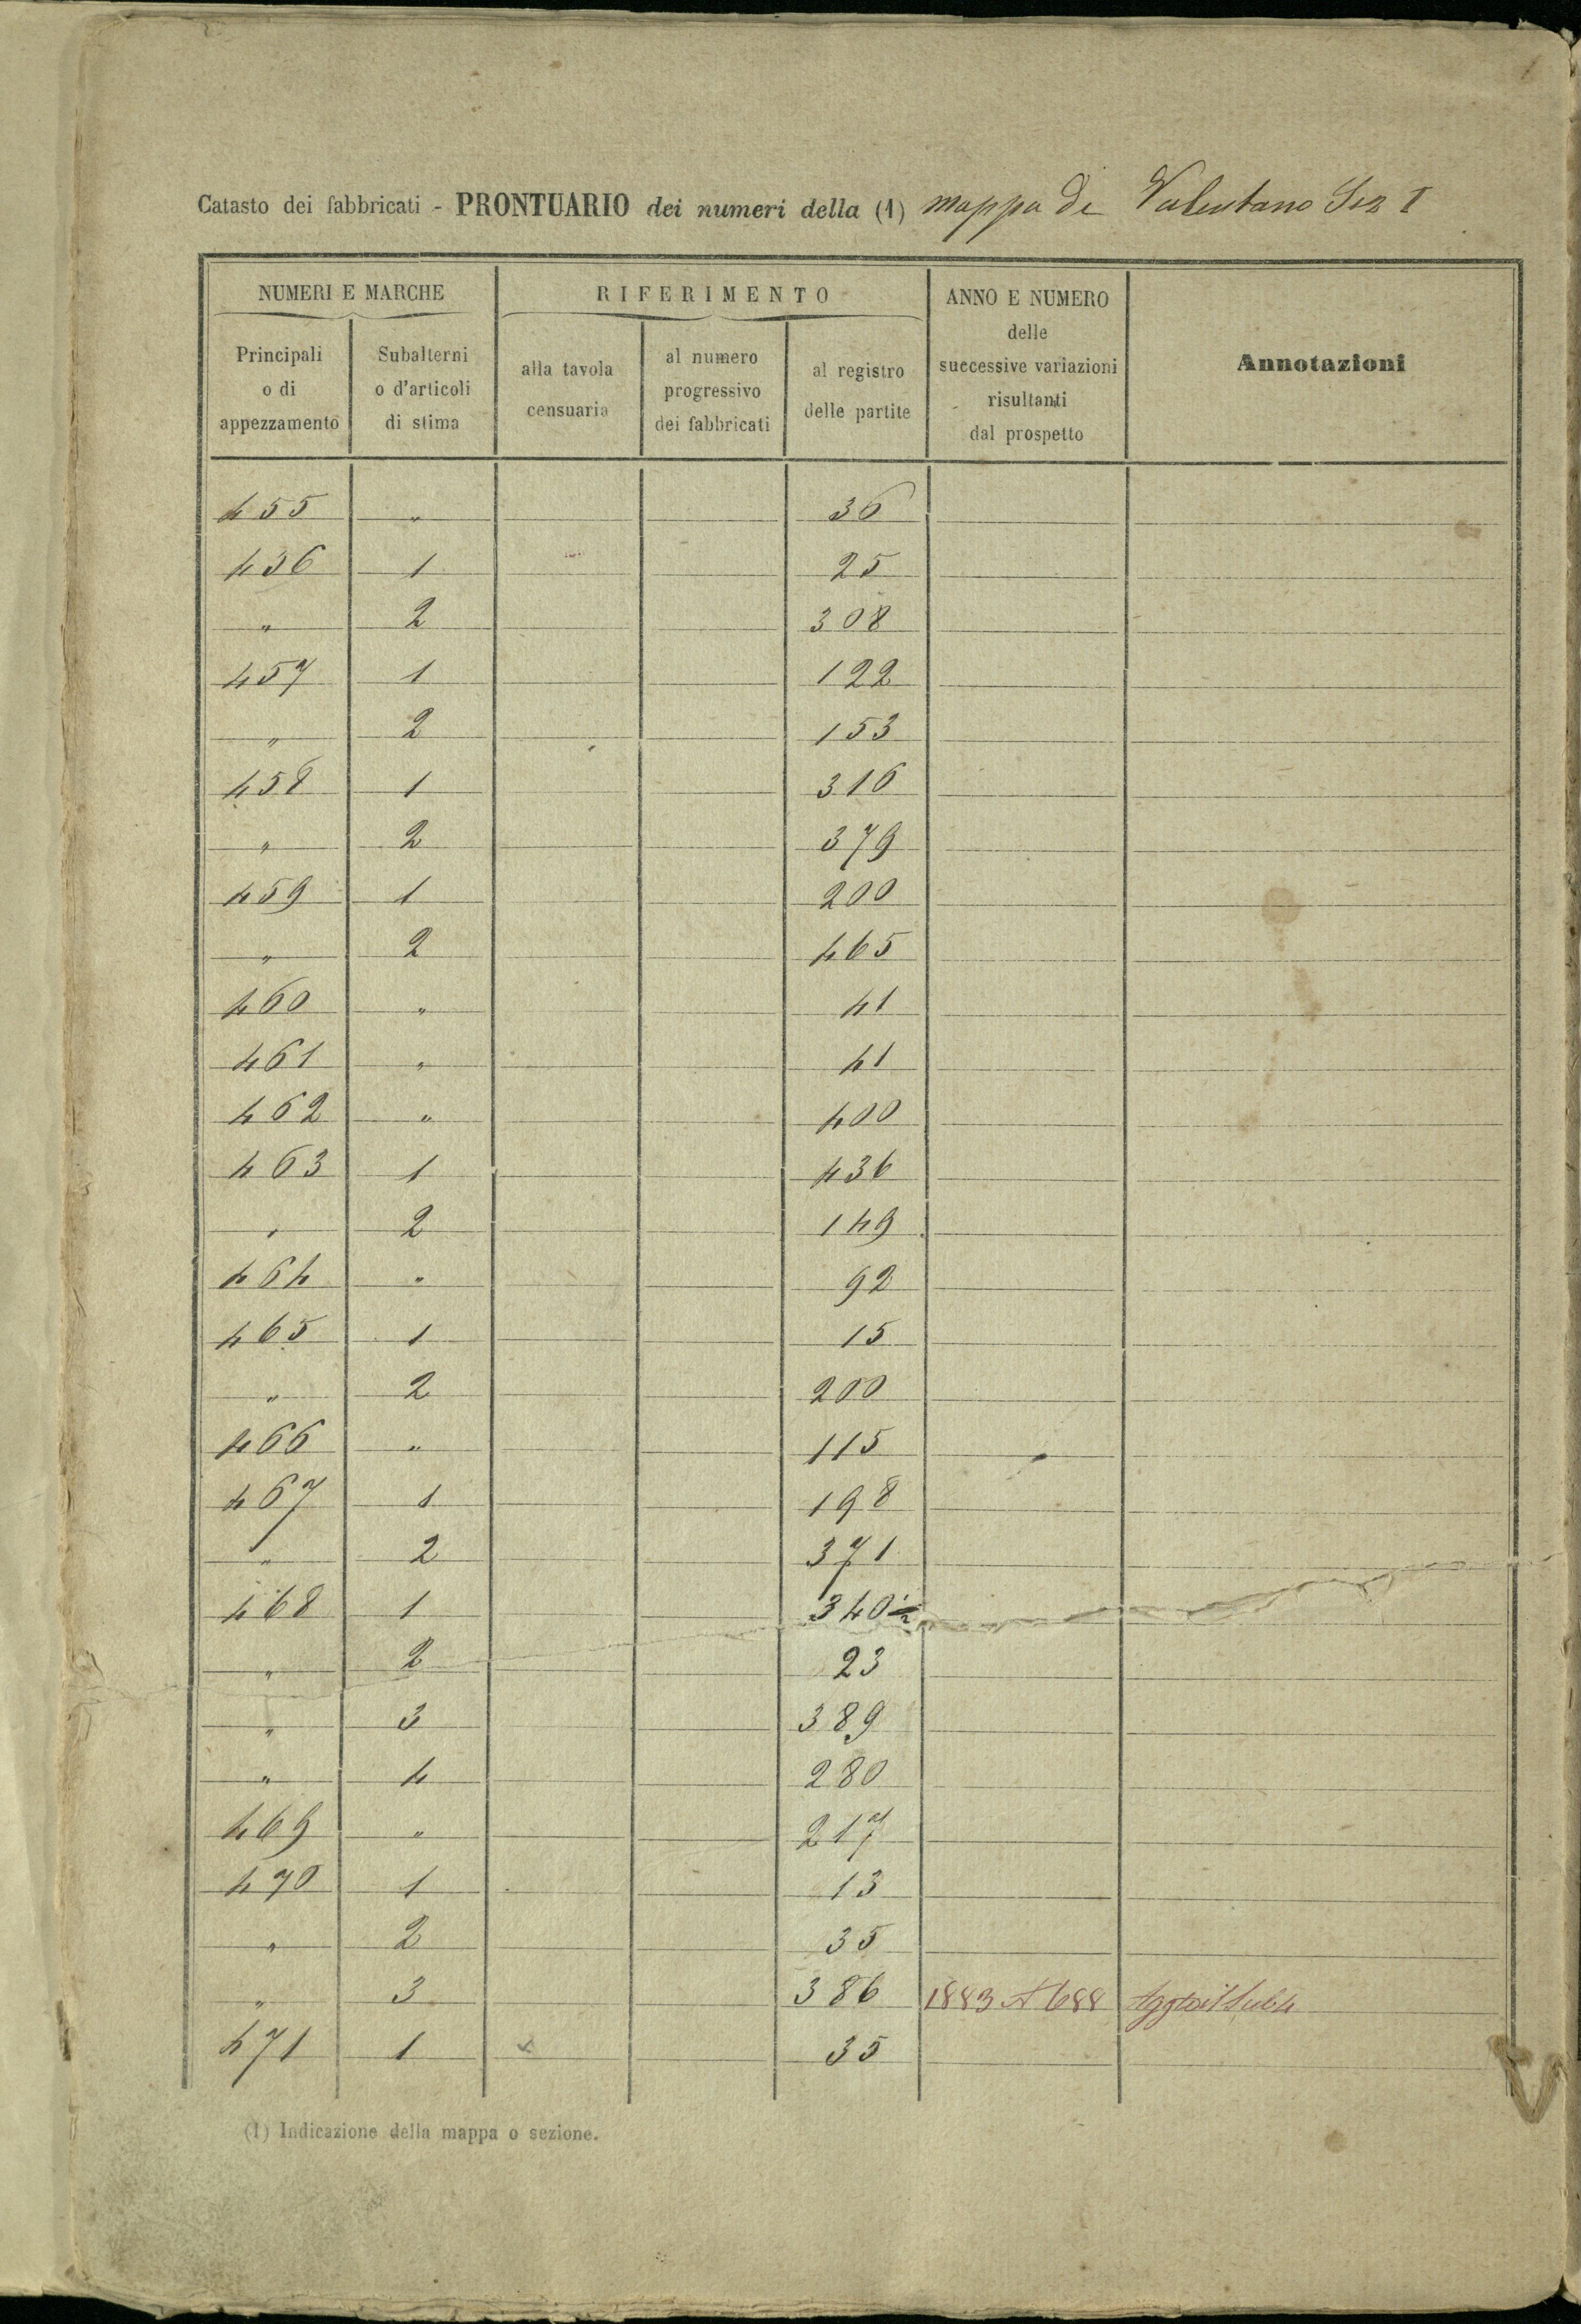 Catasto dei fabbricati - PRONTUARIO dei numeri della (1) mappa di Valentano Sez I
NUMERI E MARCHE
Principali o di appezzamento
Subalterni o d'articoli di stima
RIFERIMENTO
alla tavola censuaria
al numero progressivo dei fabbricati
al registro delle partite
ANNO E NUMERO delle successive variazioni risultanti dal prospetto
Annotazioni
455 " 36
456 1 25
" 2 308
457 1 122
" 2 153
458 1 316
" 2 379
459 1 200
" 2 465
460 " 41
461 " 41
462 " 400
463 1 436
" 2 149
464 " 92
465 1 15
" 2 200
466 " 115
467 1 198
" 2 371
468 1 340 1/2
" 2 23
" 3 389
" 4 280
469 " 217
470 1 13
" 2 35
" 3 386 1883 A 688
471 1 x 35
(1) Indicazione della mappa o sezione.